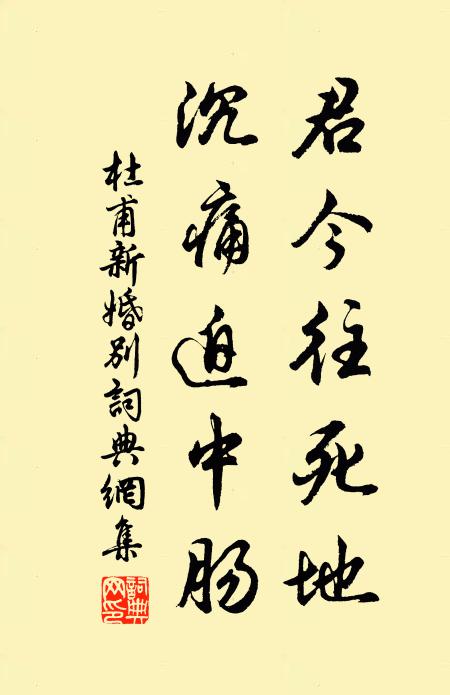 君今往死地
沉痛迫中肠
杜甫新婚别詞典網集
詞典網印